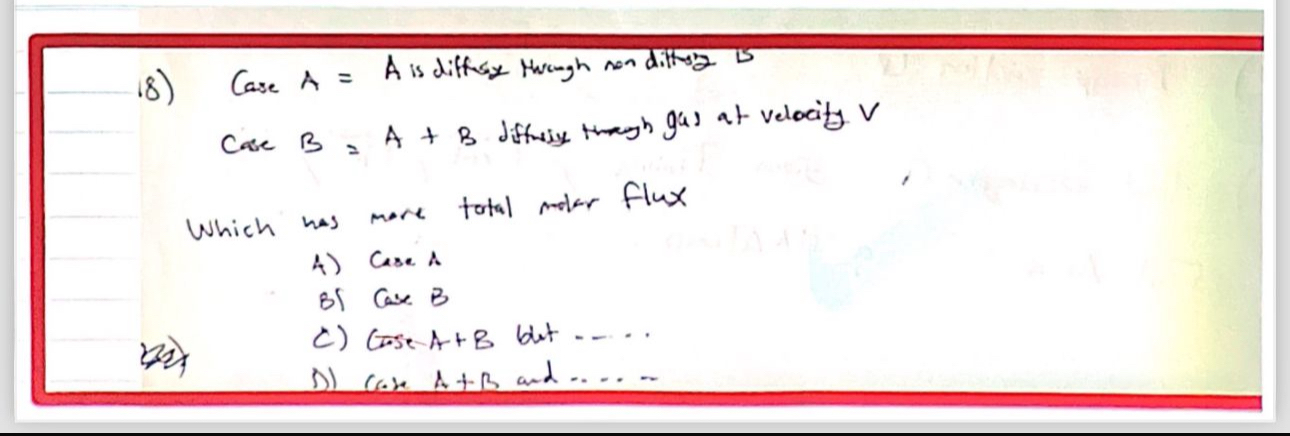 18) Case A = A is diffusing through non diffusing B
Case B = A + B diffusing through gas at velocity V
Which has more total molar flux
A) Case A
B) Case B
C) Case A+B but -----
D) Case A+B and -----